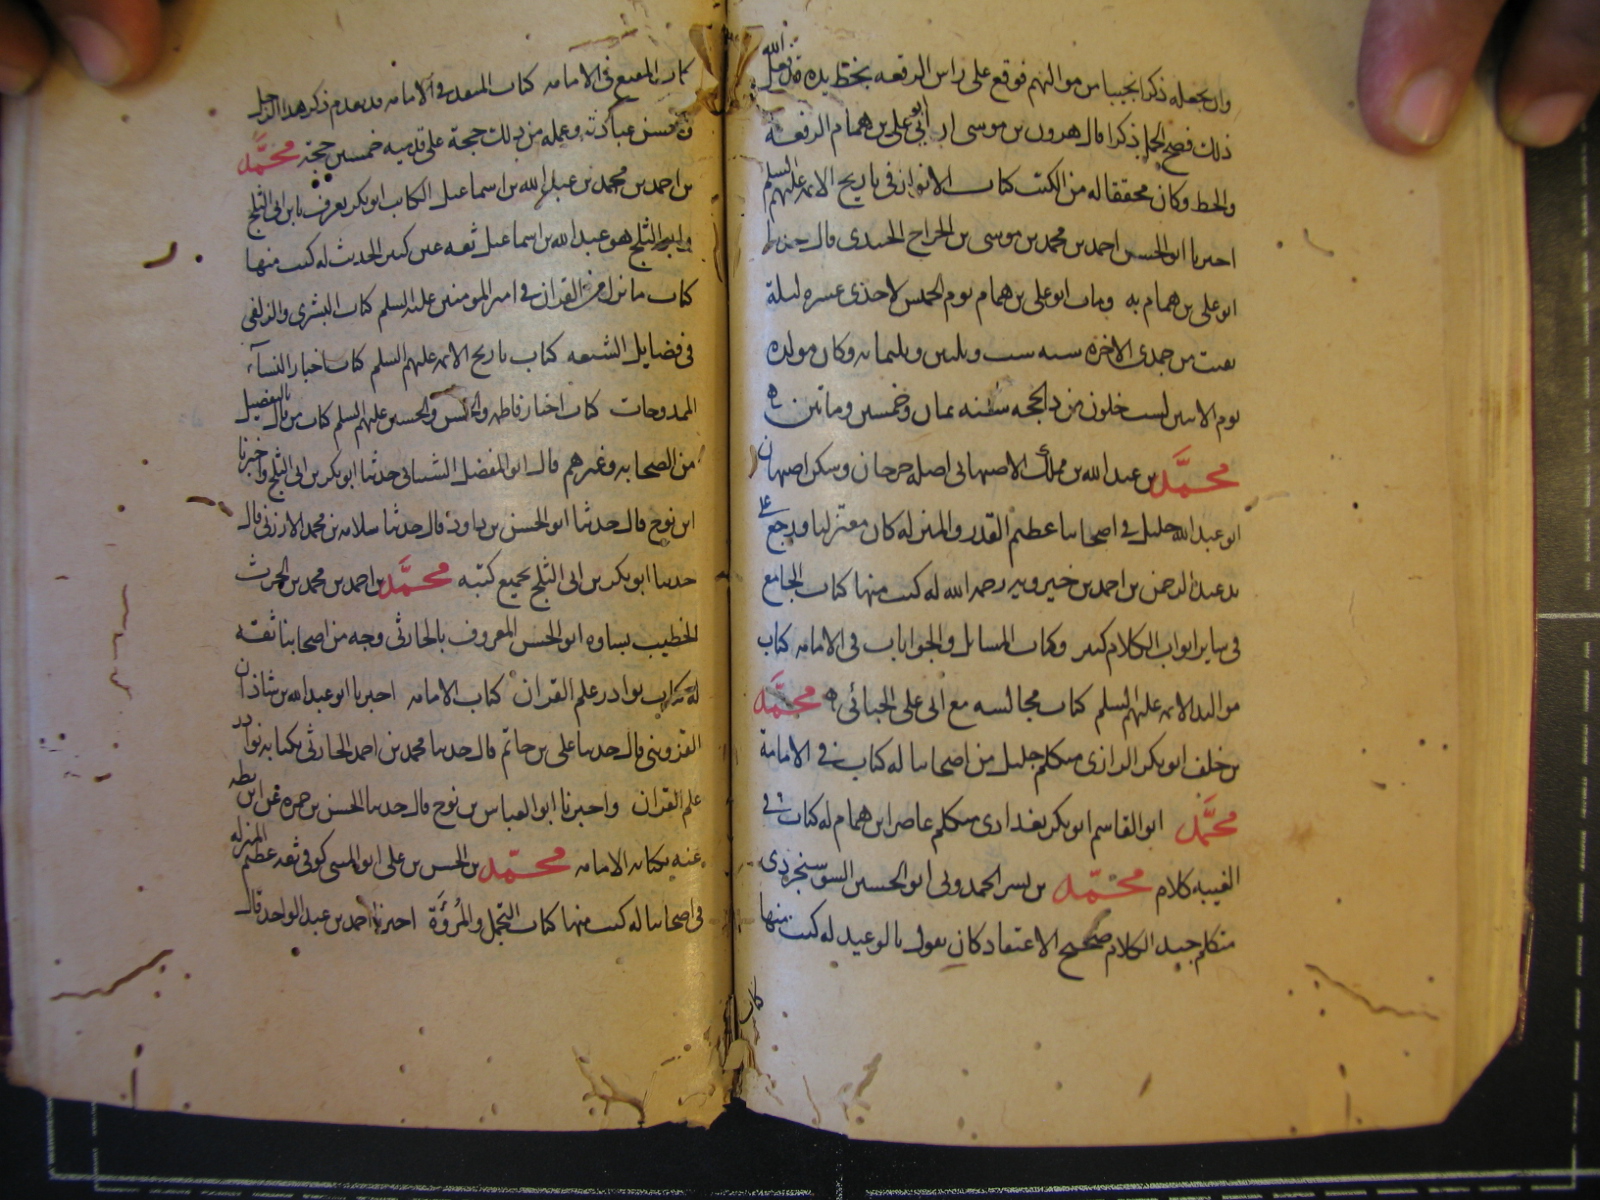 وان يجعله ذكرا نجيبا من مواليهم فوقع على راس الرقعه بخط يده قد فعل الله
ذلك فصح الحمل ذكرا قال هرون بن موسى ارانى ابو على بن همام الرقعة
والخط وكان محققا له من الكتب كتاب الانوار فى تاريخ الائمه عليهم السلم
اخبرنا ابو الحسن احمد بن محمد بن موسى بن الجراح الجندى قال حدثنا
ابو على بن همام به ومات ابو على بن همام يوم الخميس لاحدى عشره ليلة
بقيت من جمدى الاخره سنه ست وثلثين وثلثمائه وكان مولده
يوم الاثنين لست خلون من ذى الحجه سنه ثمان وخمسين ومائتين
محمد بن عبد الله بن مملك الاصبهانى اصله جرجان وسكن اصبهان
ابو عبد الله جليل فى اصحابنا عظيم القدر والمنزله كان معتزليا ورجع على
يد عبد الرحمن بن احمد بن خيرويه رحمه الله له كتب منها كتاب الجامع
فى سائر ابواب الكلام كبير وكتاب المسائل والجوابات فى الامامه كتاب
مواليد الائمه عليهم السلم كتاب مجالسه مع ابى على الجبائى محمد
بن خلف ابو بكر الرازى متكلم جليل من اصحابنا له كتاب فى الامامة
محمد ابو القاسم ابو بكر بغدادى متكلم عاصر ابن همام له كتاب فى
الغيبه كلام محمد بن بشر الحمدونى ابو الحسين السوسنجردى
متكلم جيد الكلام صحيح الاعتقاد كان يقول بالوعيد له كتب منها
كتاب
كتاب المقنع فى الامامه كتاب المنقذ فى الامامه قد تقدم ذكر هذا الرجل
من حسن عبادته وعمله من ذلك حجة على قدميه خمسين حجة محمد
بن احمد بن محمد بن عبد الله بن اسماعيل الكاتب ابو بكر يعرف بابن ابى الثلج
وابو الثلج هو عبد الله بن اسماعيل ثقه عين كثير الحديث له كتب منها
كتاب ما نزل من القران فى امير المومنين عليه السلم كتاب البشرى والزلفى
فى فضايل الشيعه كتاب تاريخ الائمه عليهم السلم كتاب اخبار النساء
الممدوحات كتاب اخبار فاطمه والحسن والحسين عليهم السلم كتاب من قال بالتفضيل
من الصحابه وغيرهم قال ابو المفضل الشيبانى حدثنا ابو بكر بن ابى الثلج واخبرنا
ابن نوح قال حدثنا ابو الحسن بن داود قال حدثنا سلامه بن محمد الارزنى قال
حدثنا ابو بكر بن ابى الثلج بجميع كتبه محمد بن احمد بن محمد بن الحرث
الخطيب بساوه ابو الحسن المعروف بالحارثى وجه من اصحابنا ثقه
له كتاب نوادر علم القران كتاب الامامه اخبرنا ابو عبد الله بن شاذان
القزوينى قال حدثنا على بن حاتم قال حدثنا محمد بن احمد الحارثى بكتابه نوادر
علم القران واخبرنا ابو العباس بن نوح قال حدثنا الحسن بن حمزه عن ابن بطه
عنه بكتابه الامامه محمد بن الحسن بن على ابو المثنى كوفى ثقه عظيم المنزله
فى اصحابنا له كتب منها كتاب التجمل والمروّة اخبرنا احمد بن عبد الواحد قال